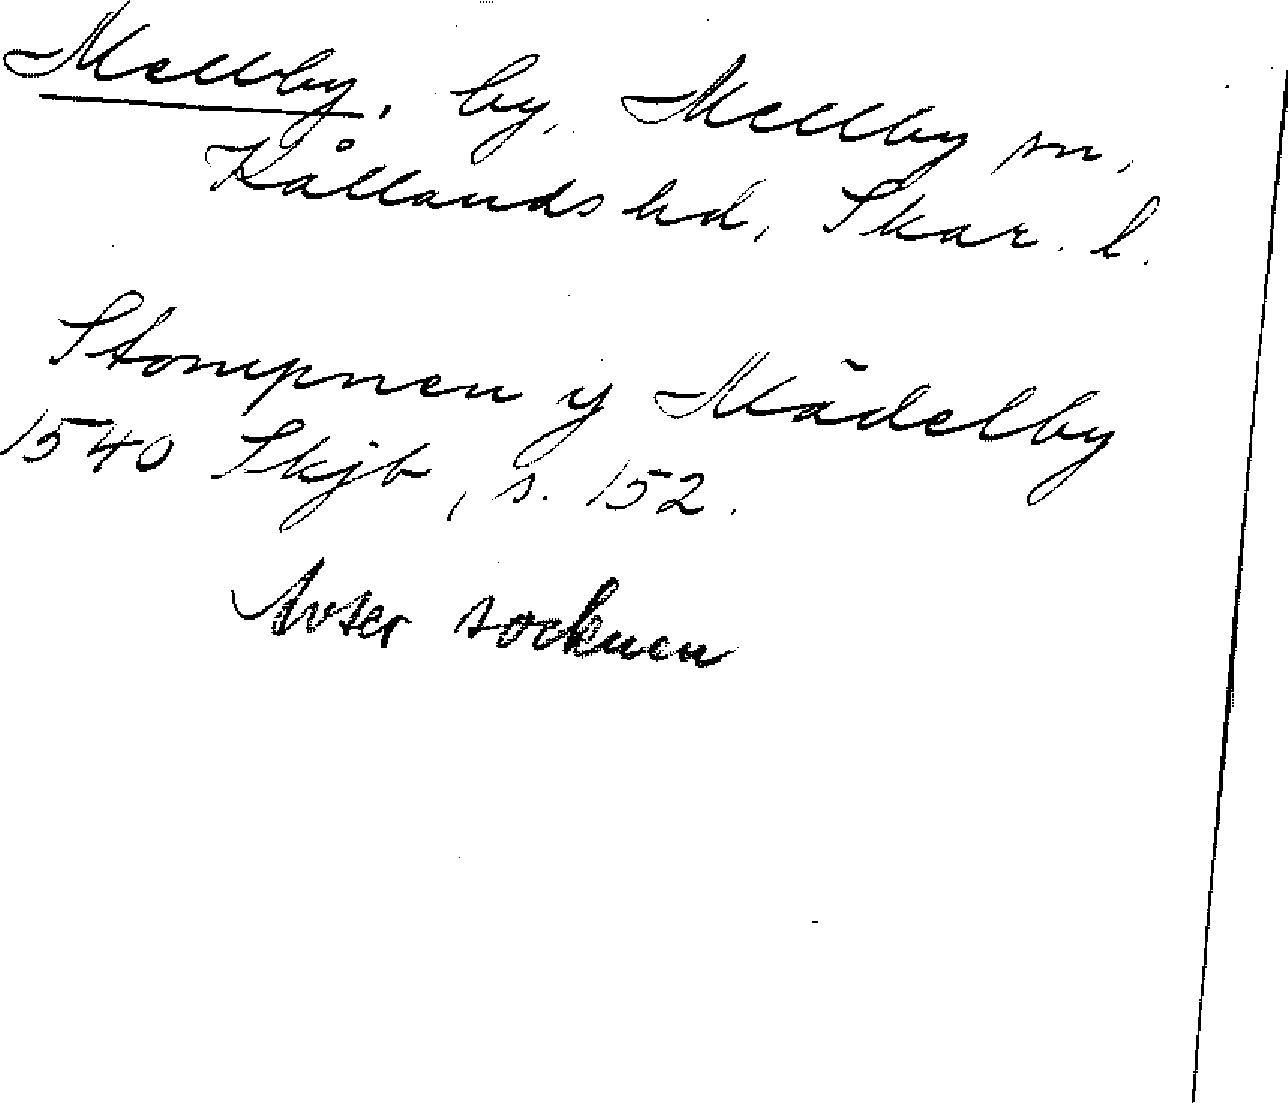 Mellby, by, Mellby sn,
Kållands hd, Skar. l.
Stompnen y Mädelby
1540 Skjb, s. 152.
Avser socknen